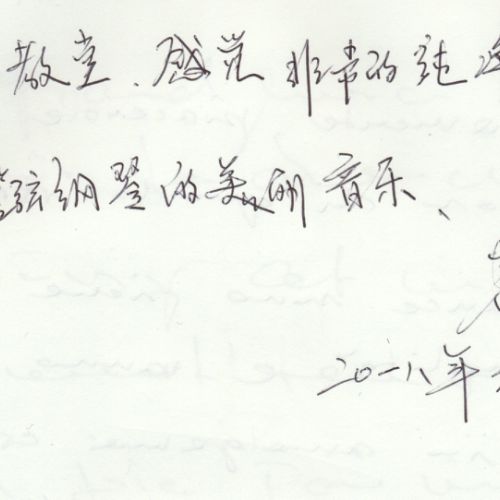 教堂、感觉非常的
弦钢琴的美丽音乐、
二〇一八年